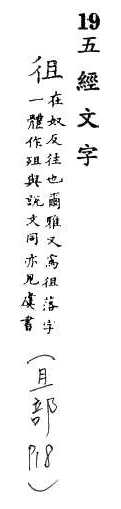 19 五經文字
徂 在奴反往也爾雅又爲徂落字
一體作殂與說文同亦見虞書
(且部 P18)